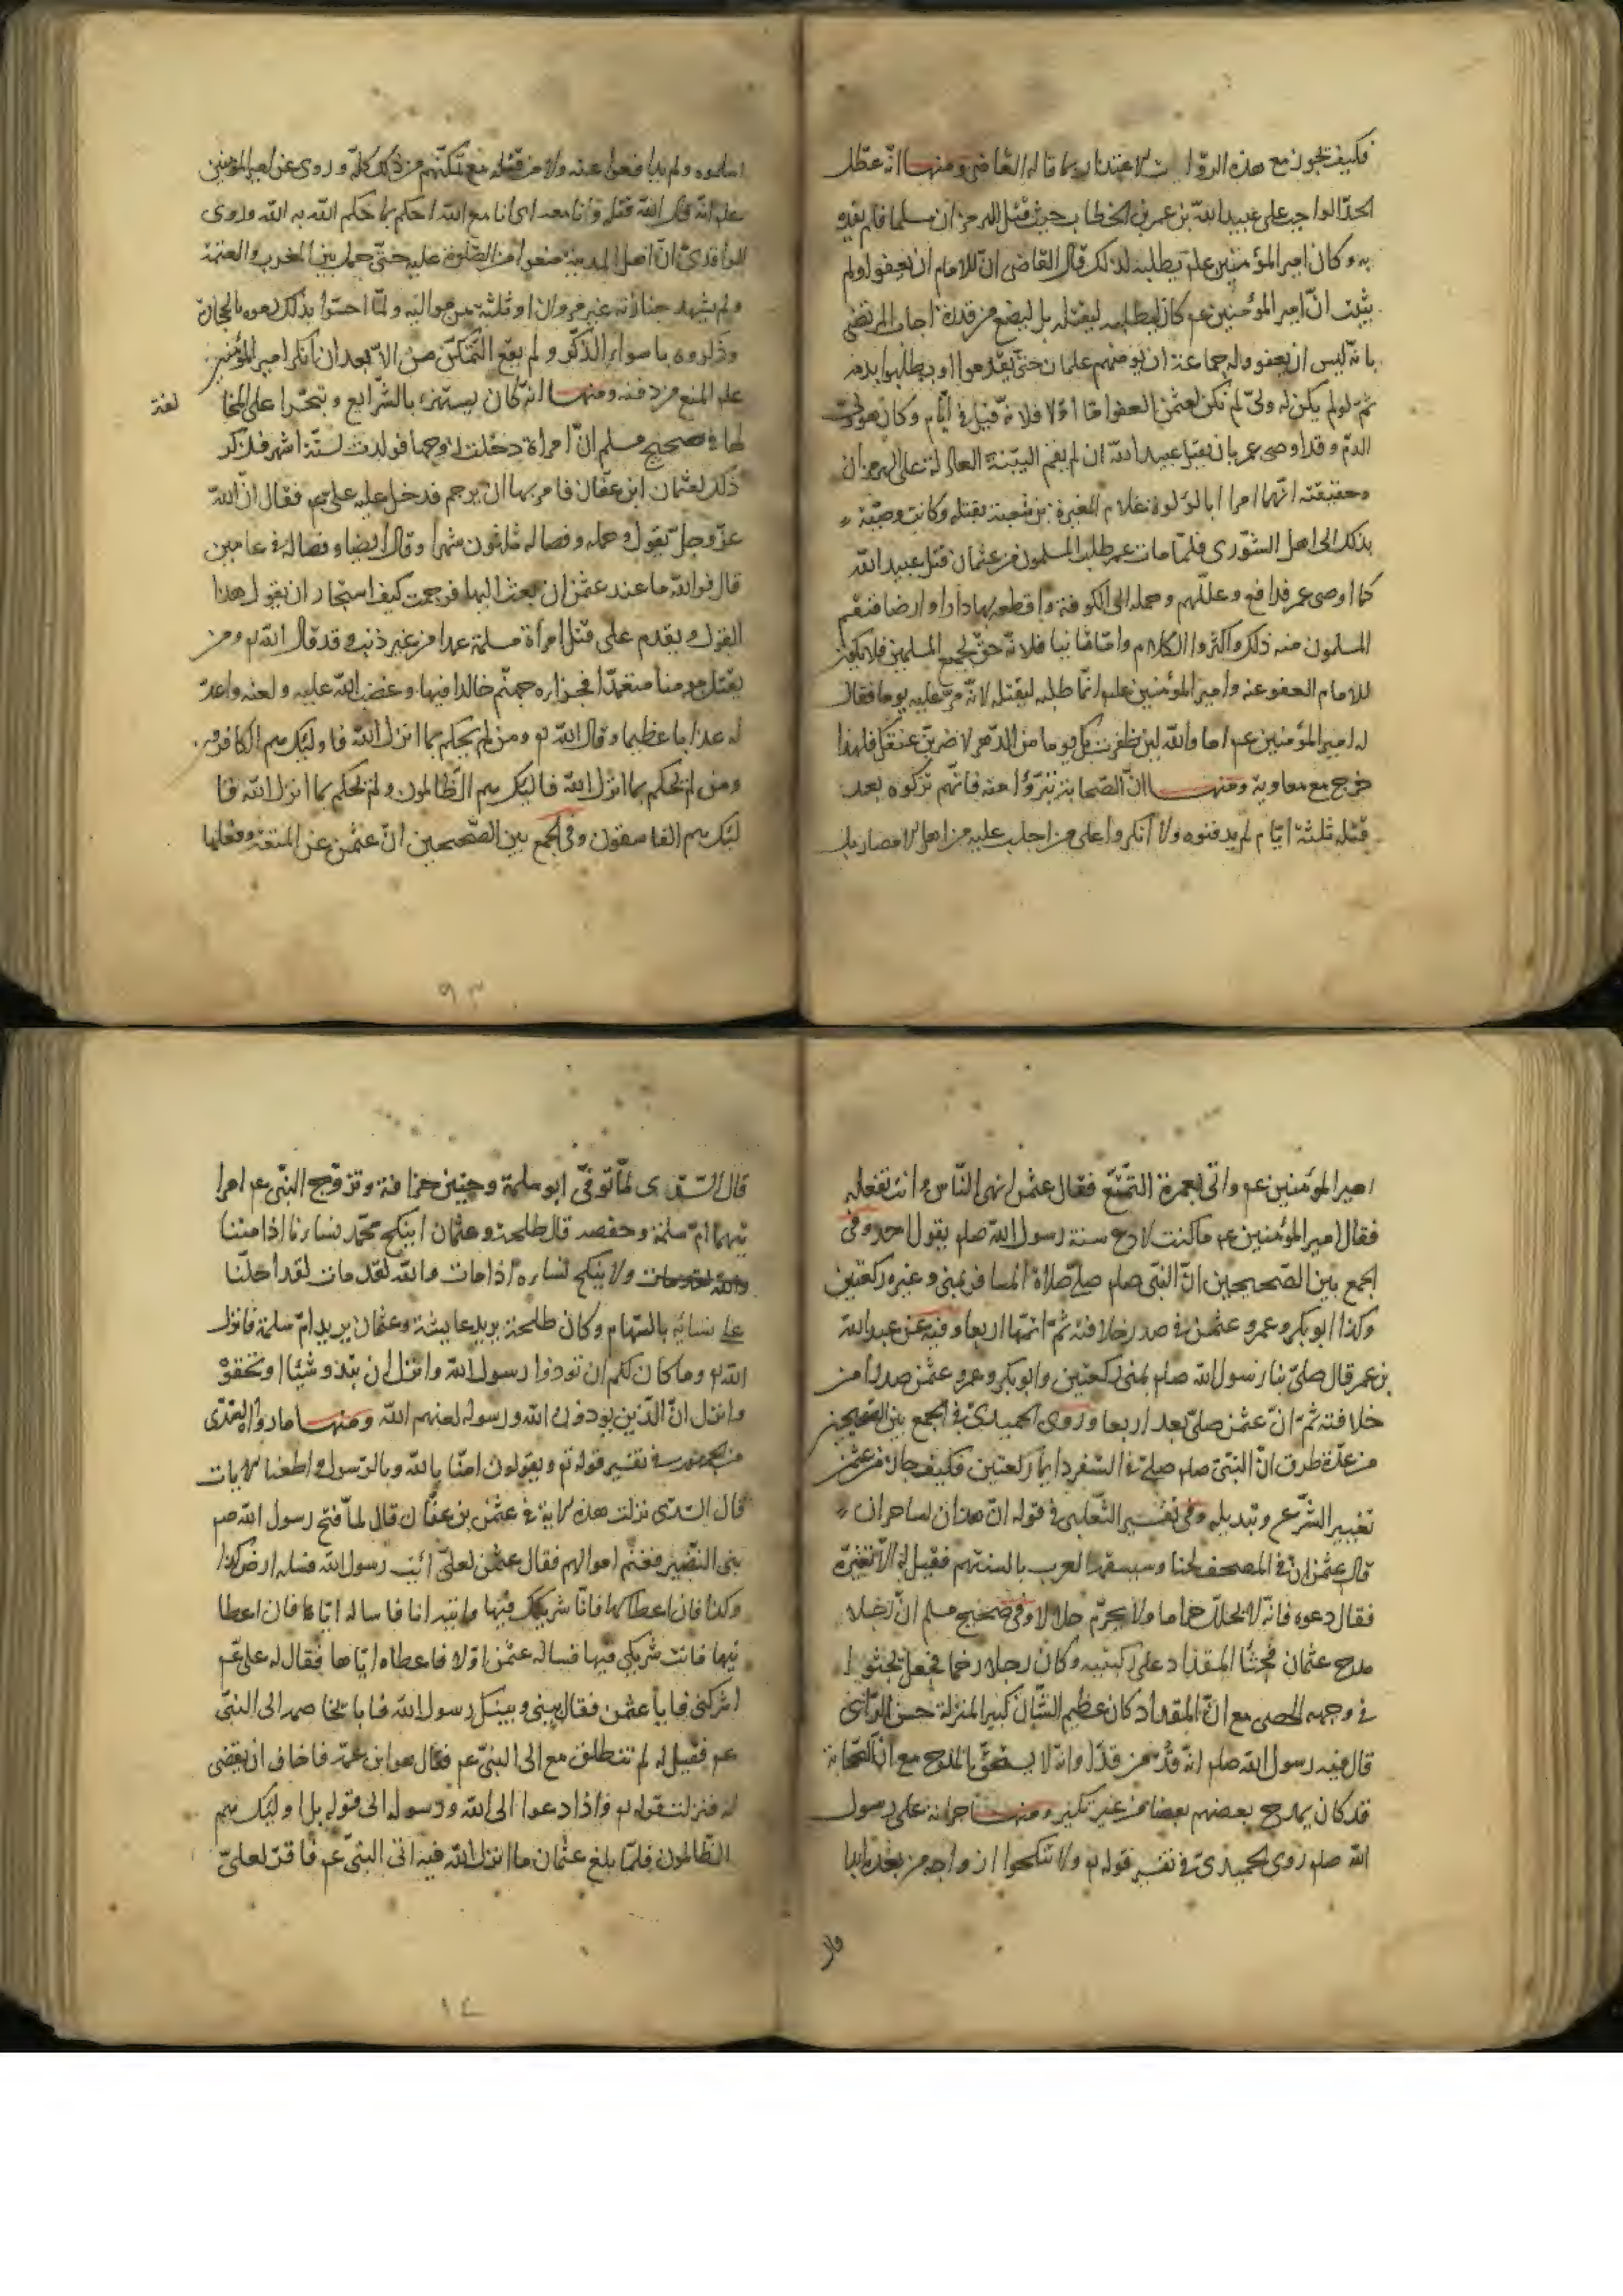 فكيف يجوز مع هذه الروايات الاعتذار بما قاله القاضي ومنها انه عطل
الحد الواجب على عبيد الله بن عمر بن الخطاب حيث قتل الهرمزان مسلما فلم يقده
به وكان امير المؤمنين علم يطلبه لذلك قال القاضي ان للامام ان يعفو ولم
يثبت ان امير المؤمنين عم كان يطلبه ليقتله بل ليضع من قدره اجاب المرتضى
بانه ليس ان يعفو وله جماعة ان يؤمنهم عثمان حتى يقدموا او يطلبوا بدمه
ثم لو لم يكن له ولي لم يكن لعثمن العفو اما اولا فلانه قتل في ايام وكان هو ولي
الدم وقد اوصى عمر بان يقتل عبيد الله ان لم يقم البينة العادلة على الهرمزان
وحقيقته انهما امرا ابا لؤلؤة غلام المغيرة بن شعبة بقتله وكانت وصيته
بذلك الى اهل الشورى فلما مات عمر طلب المسلمون من عثمان قتل عبيد الله
كما اوصى عمر فدافع وعللهم وحمله الى الكوفة واقطعه بها دارا وارضا فنقم
المسلمون منه ذلك واكثروا الكلام واما ثانيا فلانه حق لجميع المسلمين فلا يكون
للامام العفو عنه وامير المؤمنين علم انما طلبه ليقتله لانه مر عليه يوما فقال
له امير المؤمنين عم اما والله لين ظفرت بك يوما من الدهر لاضربن عنقك فلهذا
خرج مع معاوية ومنها ان الصحابة تبرؤا منه فانهم تركوه بعد
قتله ثلثة ايام لم يدفنوه ولا انكروا على من اجلب عليه من اهل الامصار بل
اسلموه ولم يدافعوا عنه ولا من قتله مع تمكنهم من ذلك كله وروى عن امير المؤمنين
علم انه قال الله قتله وانا معه اى انا مع الله احكم بما حكم الله به الله وروى
الواقدى ان اهل المدينة منعوا من الصلوة عليه حتى حمل بين المغرب والعتمة
ولم يشهد جنازته غير مروان او ثلثة من مواليه ولما احسوا بذلك رموه بالحجارة
وذكروه باسواء الذكر ولم يقع التمكن من الا بعد ان انكر امير المؤمنين
علم المنع من دفنه ومنها انه كان يستهزء بالشرايع وتجترا على المخا
لفة
لها في صحيح مسلم ان امراة دخلت لزوجها فولدت لستة اشهر فذكر
ذكر لعثمان ابن عفان فامر بها ان يرجم فدخل عليه على عم فقال ان الله
عز وجل يقول وحمله وفصاله ثلثون شهرا وقال ايضا وفصاله في عامين
قال فوالله ما عند عثمن ان بعث اليها فرجمت كيف استجاز ان يقول هذا
القول ويقدم على قتل امرأة مسلمة عمدا من غير ذنب وقد قال الله تع ومن
يقتل مومنا متعمدا فجزاره جهنم خالدا فيها وغضب الله عليه ولعنه واعد
له عذابا عظيما وقال الله تع ومن لم يحكم بما انزل الله فاوليك هم الكافرون
ومن لم يحكم بما انزل الله فاليك هم الظالمون ولم يحكم بما انزل الله فا
ليك هم الفاسقون وفى الجمع بين الصحيحين ان عثمن عن المتعة وفعلها
امير المؤمنين عم واتى بعمرة التمتع فقال عثمن انهى الناس وانت تفعله
فقال امير المؤمنين عم ما كنت لادع سنة رسول الله صلم بقول احد وفى
الجمع بين الصحيحين ان النبى صلم صلى صلاة المسافر بمنى وغيره ركعتين
وكذا ابو بكر وعمر وعثمن في صدر خلافته ثم اتمها اربعا وفيه عن عبد الله
بن عمر قال صلى بنا رسول الله صلم بمنى ركعتين وابو بكر وعمر وعثمن صدرا من
خلافته ثم ان عثمن صلى بعد اربعا وروى الحميدى في الجمع بين الصحيحين
من عدة طرق ان النبى صلم صلى في السفر دايما ركعتين فكيف جاز من عثمن
تغيير الشرع وتبديله وفى تفسير الثعلبى في قوله ان هذان لساحران
قال عثمن ان في المصحف لحنا وسيسقه العرب بالسنتهم فقيل له الا تغيره
فقال دعوه فانه لا يحلل حراما ولا يحرم حلالا وفى صحيح مسلم ان رجلا
مدح عثمان فجثا المقداد على ركبتيه وكان رجلا رخما فجعل يحثوا
في وجهه الحصى مع ان المقداد كان عظيم الشان كبير المنزلة حسن الراى
قال فيه رسول الله صلم انه قد من قدا وانه لا يستحق بالمدح مع ان الصحابة
قد كان يمدح بعضهم بعضا من غير نكير ومنها جراته على رسول
الله صلم روى الحميدى في تفسير قوله تع ولا تنكحوا ازواجه من بعده ابدا
قال
قال السدى لما توفى ابو سلمة وحنين حذافة وتزوج النبى عم امرا
تيهما ام سلمة وحفصه قال طلحة وعثمان اينكح محمد نساءنا اذا متنا
ولا ينكح نساره اذا مات والله لقد مات لقد احلنا
على نسائه بالسهام وكان طلحة يريد عايشة وعثمان يريد ام سلمة فانزل
الله تع وما كان لكم ان توذوا رسول الله وانزل ان تبدو شيئا او تخفوه
وانزل ان الذين يوذون الله ورسوله لعنهم الله ومنها ما رواه السدى
في تفسير قوله تع ويقولون امنا بالله وبالرسول واطعنا الايات
قال السدى نزلت هذه الاية في عثمن بن عفان قال لما فتح رسول الله صم
بنى النضير فغنم اموالهم فقال عثمن لعلى ائت رسول الله فسله ارض كذا
وكذا فان اعطاكها فانا شريكك فيها واتيه انا فاساله اياها فان اعطا
نيها فانت شريكى فيها فساله عثمن اولا فاعطاه اياها فقال له على عم
اشركنى فابا عثمن فقال بينى وبينك رسول الله فابا تخاصمه الى النبى
عم فقيل له لم تنطلق مع الى النبى عم فقال هو ابن عمه فاخاف ان يقضى
له فنزلت قوله تع واذا دعوا الى الله ورسوله الى قوله بل اوليك هم
الظالمون فلما بلغ عثمان ما انزل الله فيه اتى النبى عم فاقر لعلى